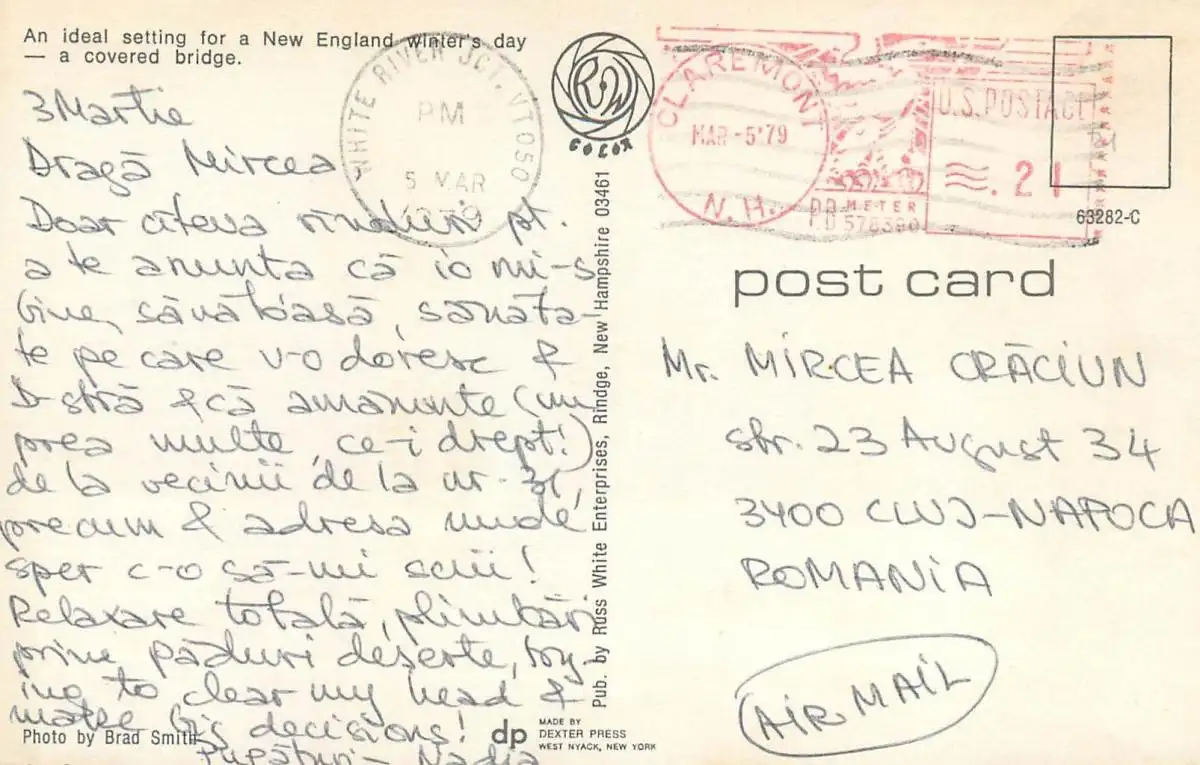 An ideal setting for a New England winter's day
— a covered bridge.
3 Martie
Dragă Mircea,
Doar cîteva rînduri pt.
a te anunta că io mi-s
bine, sănătoasă, sănăta-
te pe care v-o doresc &
D-stră & că amănunte (nu
prea multe, ce-i drept!)
de la vecinii de la nr.
precum & adresa unde
sper c-o să-mi scrii!
Relaxare totală, plimbări
prin păduri deserte, try-
ing to clear my head &
make big decisions!
Nadia
Photo by Brad Smith
WHITE RIVER JCT. VT 050
PM
5 MAR
1979
RW
COLOR
Pub. by Russ White Enterprises, Rindge, New Hampshire 03461
dp
MADE BY
DEXTER PRESS
WEST NYACK, NEW YORK
CLAREMONT
MAR -5'79
N. H.
U.S. POSTAGE
.21
P.B. METER
63282-C
post card
Mr. MIRCEA CRĂCIUN
str. 23 August 34
3400 CLUJ-NAPOCA
ROMANIA
AIR MAIL